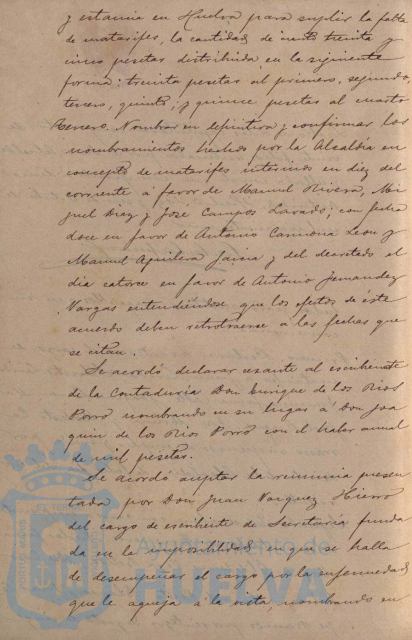 y estancia en Huelva para suplir la falta
de matarifes, la cantidad de ciento treinta y
cinco pesetas distribuida en la siguiente
forma: treinta pesetas al primero, segundo,
tercero, quinto; y quince pesetas al cuarto
Tercero. Nombrar en definitiva y confirmar los
nombramientos hechos por la Alcaldía en
concepto de matarifes interinos en diez del
corriente á favor de Manuel Rivera, Mi
guel Diaz y José Campos Lavado; con fecha
doce en favor de Antonio Carmona Leon y
Manuel Aguilera Jaina y del decretado el
dia catorce en favor de Antonio Fernandez
Vargas entendiéndose que los efectos de éste
acuerdo deben retrotraerse á las fechas que
se citan.
Se acordó declarar cesante al escribiente
de la Contaduría Don Enrique de los Rios
Porro nombrando en su lugar á Don Joa
quin de los Rios Porro con el haber anual
de mil pesetas.
Se acordó aceptar la renuncia presen
tada por Don Juan Vazquez Hierro
del cargo de escribiente de Secretaría funda
da en la imposibilidad en que se halla
de desempeñar el cargo por la enfermedad
que le aqueja á la vista, nombrando en
Ayuntamiento de
HUELVA